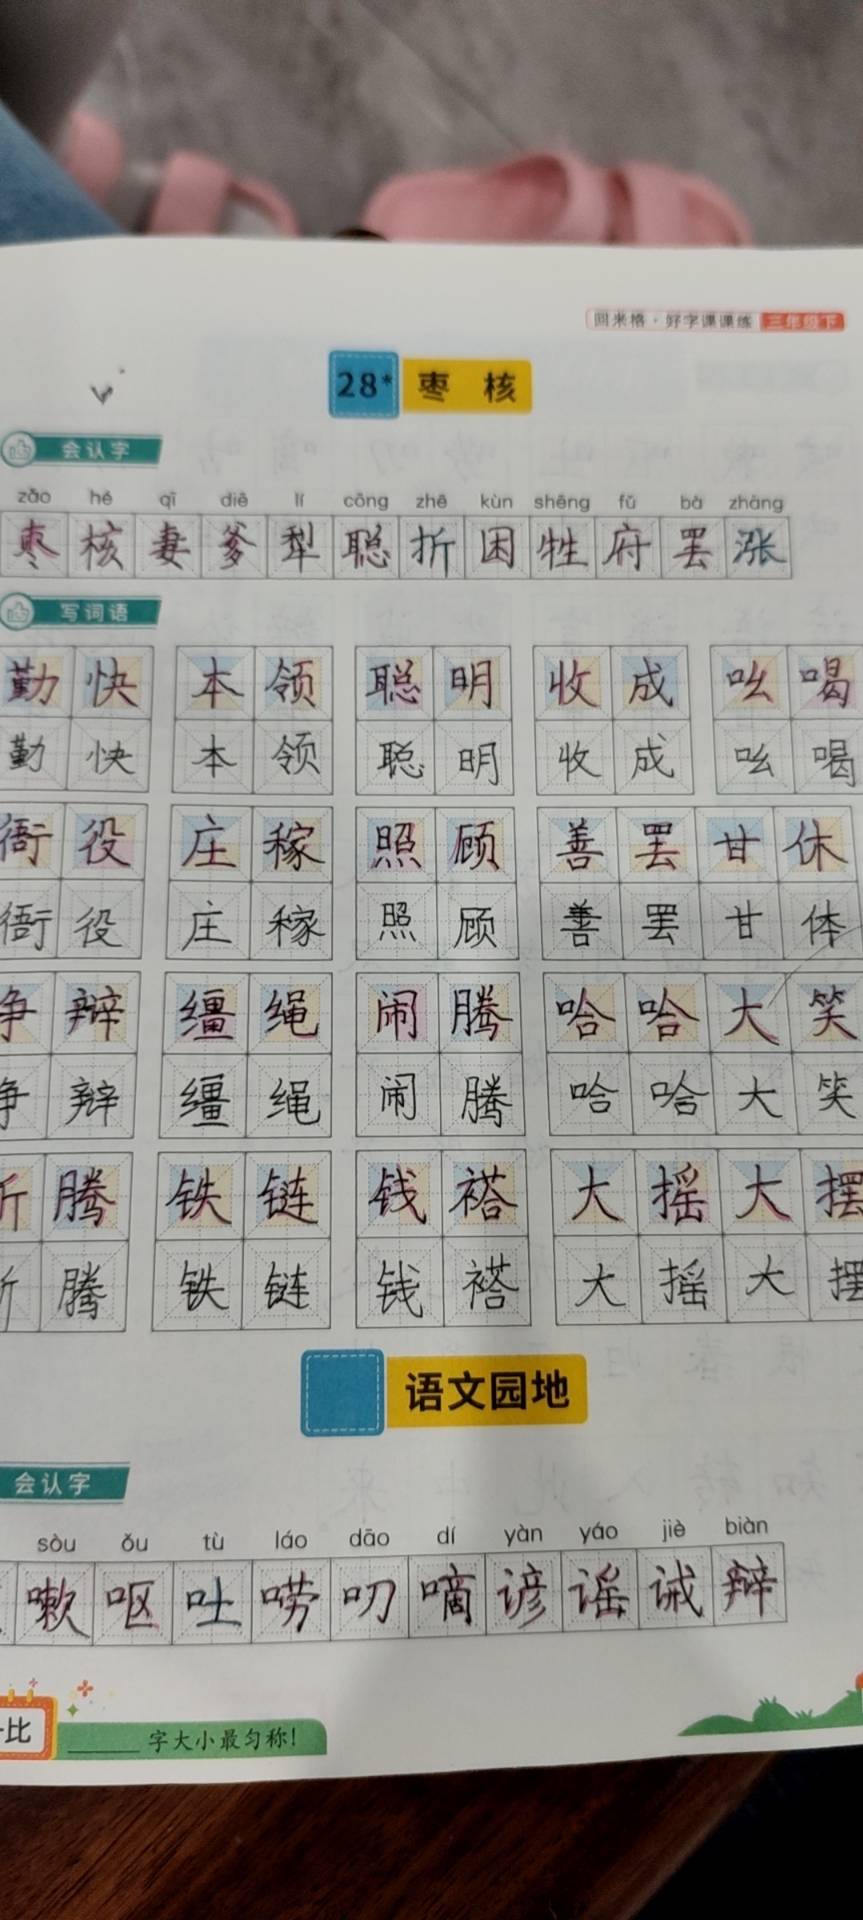 回米格·好字课课练 三年级下
28* 枣 核
会认字
zǎo hé qī diē lí cōng zhē kùn shēng fǔ bà zhàng
枣 核 妻 爹 犁 聪 折 困 牲 府 罢 涨
写词语
勤快 本领 聪明 收成 吆喝
勤快 本领 聪明 收成 吆喝
衙役 庄稼 照顾 善罢甘休
衙役 庄稼 照顾 善罢甘体
争辩 缰绳 闹腾 哈哈大笑
争辩 缰绳 闹腾 哈哈大笑
折腾 铁链 钱褡 大摇大摆
折腾 铁链 钱褡 大摇大摆
语文园地
会认字
sòu ǒu tù láo dāo dí yàn yáo jiè biàn
嗽 呕 吐 唠 叨 嘀 谚 谣 诫 辩
比
字大小最匀称!